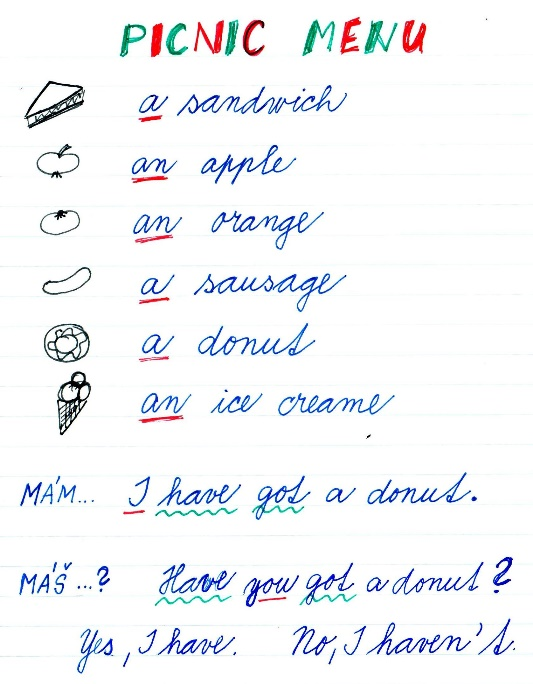 PICNIC MENU
a sandwich
an apple
an orange
a sausage
a donut
an ice creame
MÁM... I have got a donut.
MÁŠ...? Have you got a donut?
Yes, I have. No, I haven't.